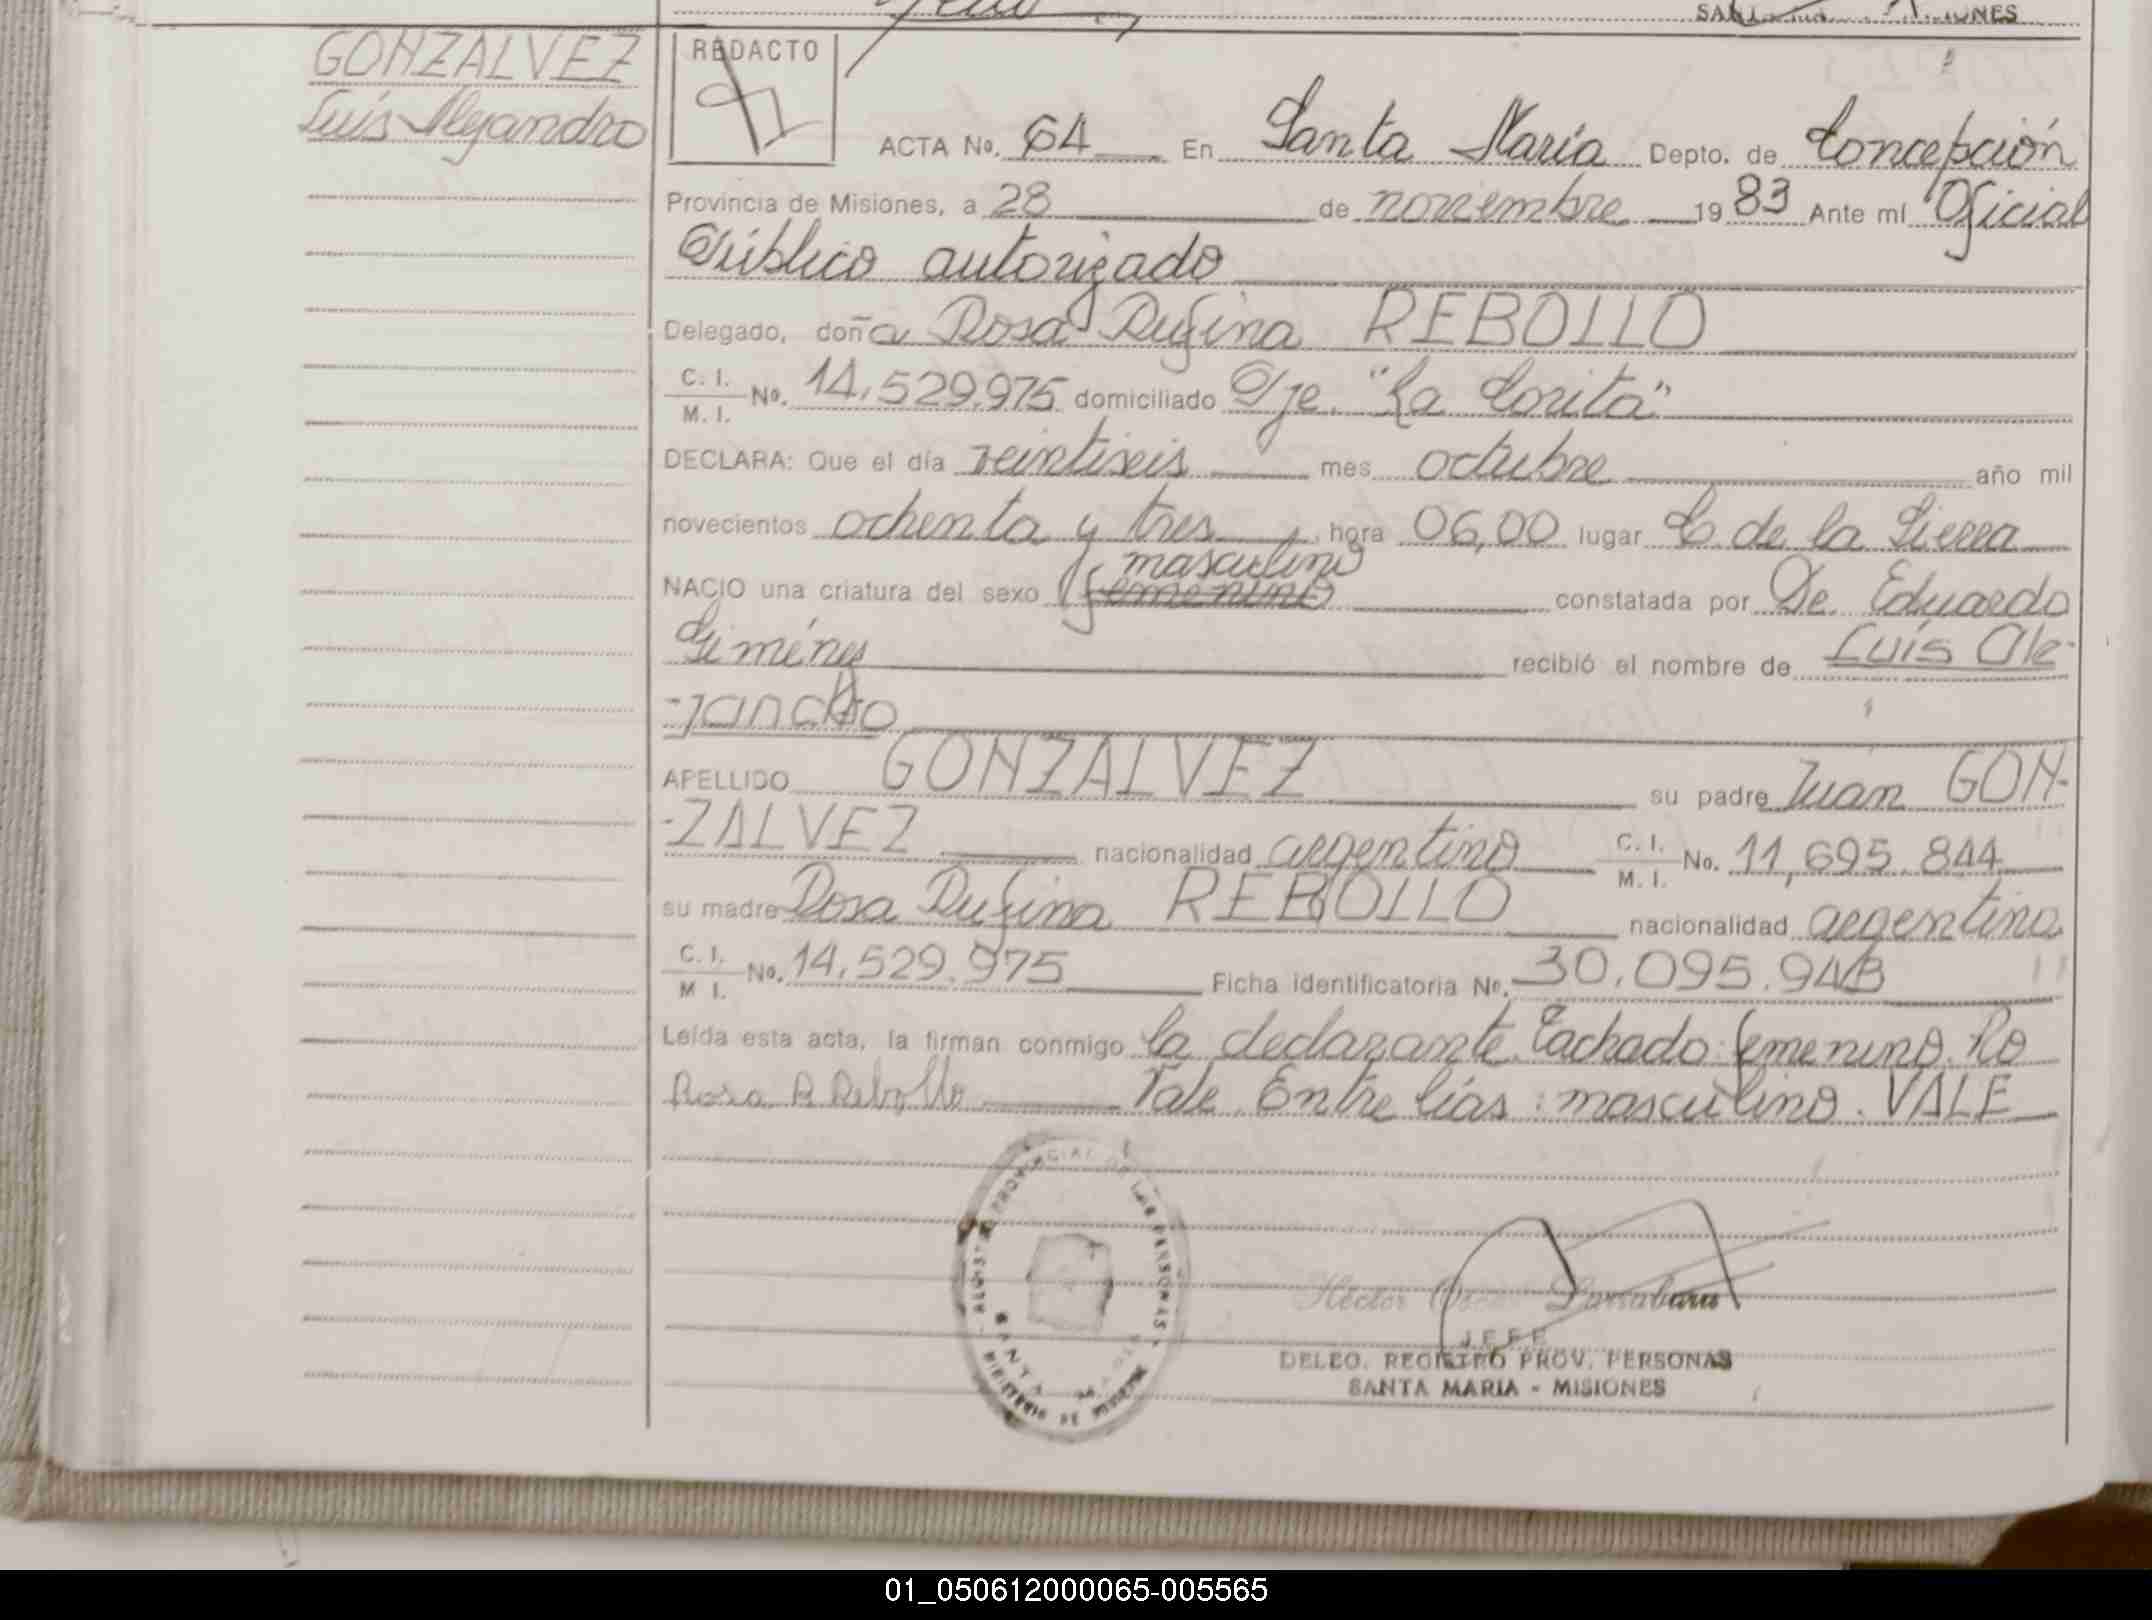 GONZALVEZ
Luis Alejandro
REDACTO
ACTA No. 64 En Santa María Depto. de Concepción
Provincia de Misiones, a 28 de noviembre 1983 Ante mí Oficial
Público autorizado
Delegado, doña Rosa Rufina REBOLLO
C. I. / M. I. No. 14.529.975 domiciliado Pje. "La Corita"
DECLARA: Que el día veintiseis mes octubre año mil
novecientos ochenta y tres, hora 06,00 lugar C. de la Sierra
masculino
NACIO una criatura del sexo femenino constatada por Dr. Eduardo
Giménez recibió el nombre de Luís Ale-
-jandro
APELLIDO GONZALVEZ su padre Juan GON-
-ZALVEZ nacionalidad argentino C. I. / M. I. No. 11,695.844
su madre Rosa Rufina REBOLLO nacionalidad argentina
C. I. / M. I. No. 14.529.975 Ficha identificatoria No. 30.095.943
Leída esta acta, la firman conmigo la declarante. Tachado: femenino. No
Rosa R Rebollo Vale. Entre lías: masculino. VALE
REGISTRO PROVINCIAL DE LAS PERSONAS
SANTA MARIA
MINISTERIO DE GOBIERNO
Héctor Oscar
JEFE
DELEG. REGISTRO PROV. PERSONAS
SANTA MARIA - MISIONES
01_050612000065-005565